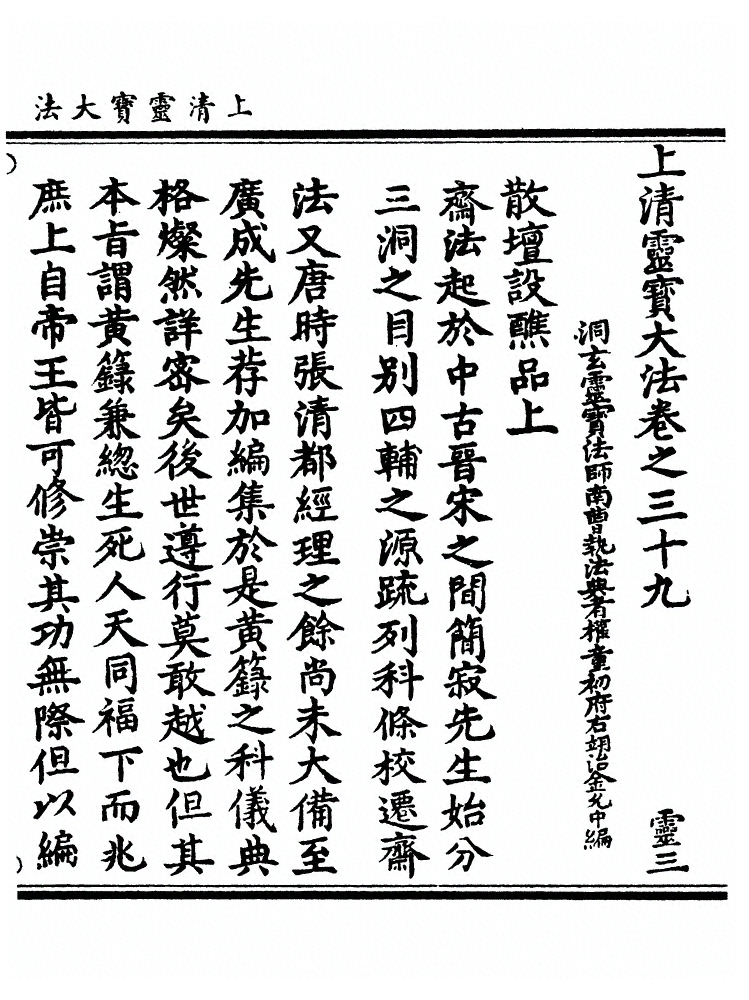 上清靈寶大法
上清靈寶大法卷之三十九 靈三
洞玄靈寶法師南曹執法典者權童初府右翊治金允中編
散壇設醮品上
齋法起於中古晉宋之間簡寂先生始分
三洞之目別四輔之源疏列科條校遷齋
法又唐時張清都經理之餘尚未大備至
廣成先生荐加編集於是黃籙之科儀典
格燦然詳密矣後世遵行莫敢越也但其
本旨謂黃籙兼總生死人天同福下而兆
庶上自帝王皆可修崇其功無際但以編